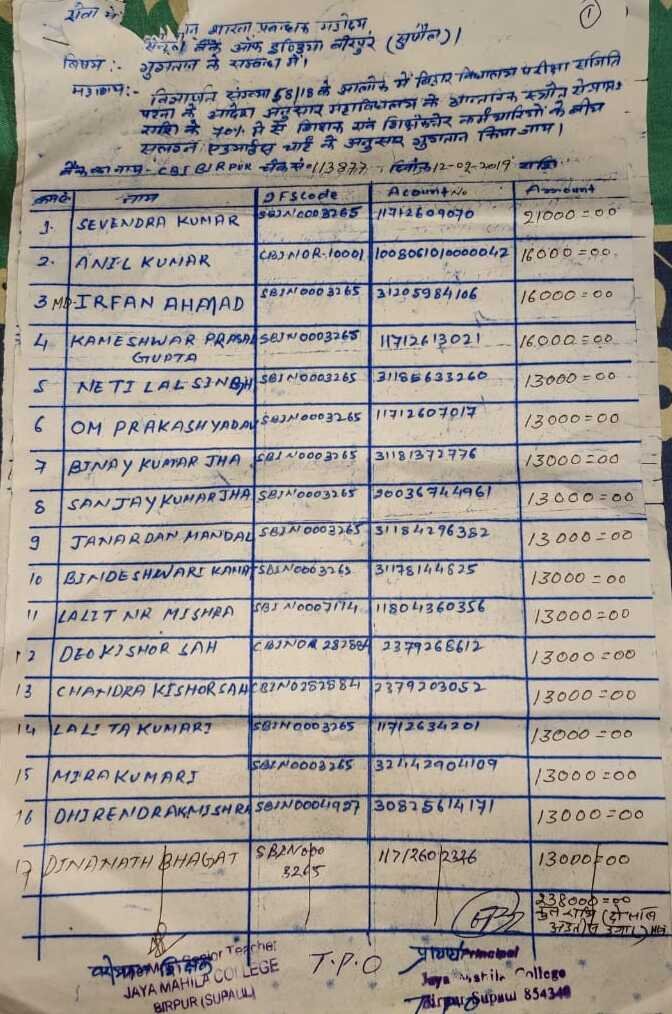 सेवा में
①
शाखा प्रबन्धक महोदय
सेन्ट्रल बैंक ऑफ इण्डिया बीरपुर (सुपौल)।
विषय:- भुगतान के सम्बन्ध में।
महाशय:- विज्ञापन संख्या 58/18 के आलोक में बिहार विद्यालय परीक्षा समिति
पटना के आदेश अनुसार महाविद्यालय के आन्तरिक स्त्रोत से प्राप्त
राशि के 70% में से शिक्षक एवं शिक्षकेत्तर कर्मचारियों के बीच
संलग्न एडभाईस चार्ट के अनुसार भुगतान किया जाय।
बैंक का नाम- CBI BIRPUR चेक सं०:113877 दिनांक 12-02-2019 राशि
क्रमांक नाम IFSCode Acount No Amount
1. SEVENDRA KUMAR SBIN0003265 11712609070 21000=00
2. ANIL KUMAR CBINOR-10001 1008061010000042 16000=00
3 MD-IRFAN AHMAD SBIN0003265 31205984106 16000=00
4 KAMESHWAR PRASAD SBIN0003265 11712613021 16000=00
GUPTA
5 NETI LAL SINGH SBIN0003265 31185633260 13000=00
6 OM PRAKASH YADAV SBIN0003265 11712607017 13000=00
7 BINAY KUMAR JHA SBIN0003265 31181372776 13000=00
8 SANJAY KUMAR JHA SBIN0003265 20036744961 13000=00
9 JANARDAN MANDAL SBIN0003265 31184296382 13000=00
10 BINDESHWARI KAMAT SBIN0003265 31178144825 13000=00
11 LALIT NR MISHRA SBIN0007114 11804360356 13000=00
12 DEO KISHOR SAH CBINOR 282884 2379268612 13000=00
13 CHANDRA KISHOR SAH CBIN0282884 2379203052 13000=00
14 LALITA KUMARI SBIN0003265 11712634201 13000=00
15 MIRA KUMARI SBIN0003265 32442904109 13000=00
16 DHIRENDRAKMISHRA SBIN0004927 30825614171 13000=00
17 DINANATH BHAGAT SBIN000 11712602326 13000=00
3265
238000=00
कुल राशि (दो लाख
अड़तीस हजार) मात्र
Senior Teacher
शिक्षक
JAYA MAHILA COLLEGE
BIRPUR (SUPAUL)
T.P.O
प्राचार्य Principal
Jaya Mahila College
Birpur Supaul 854340